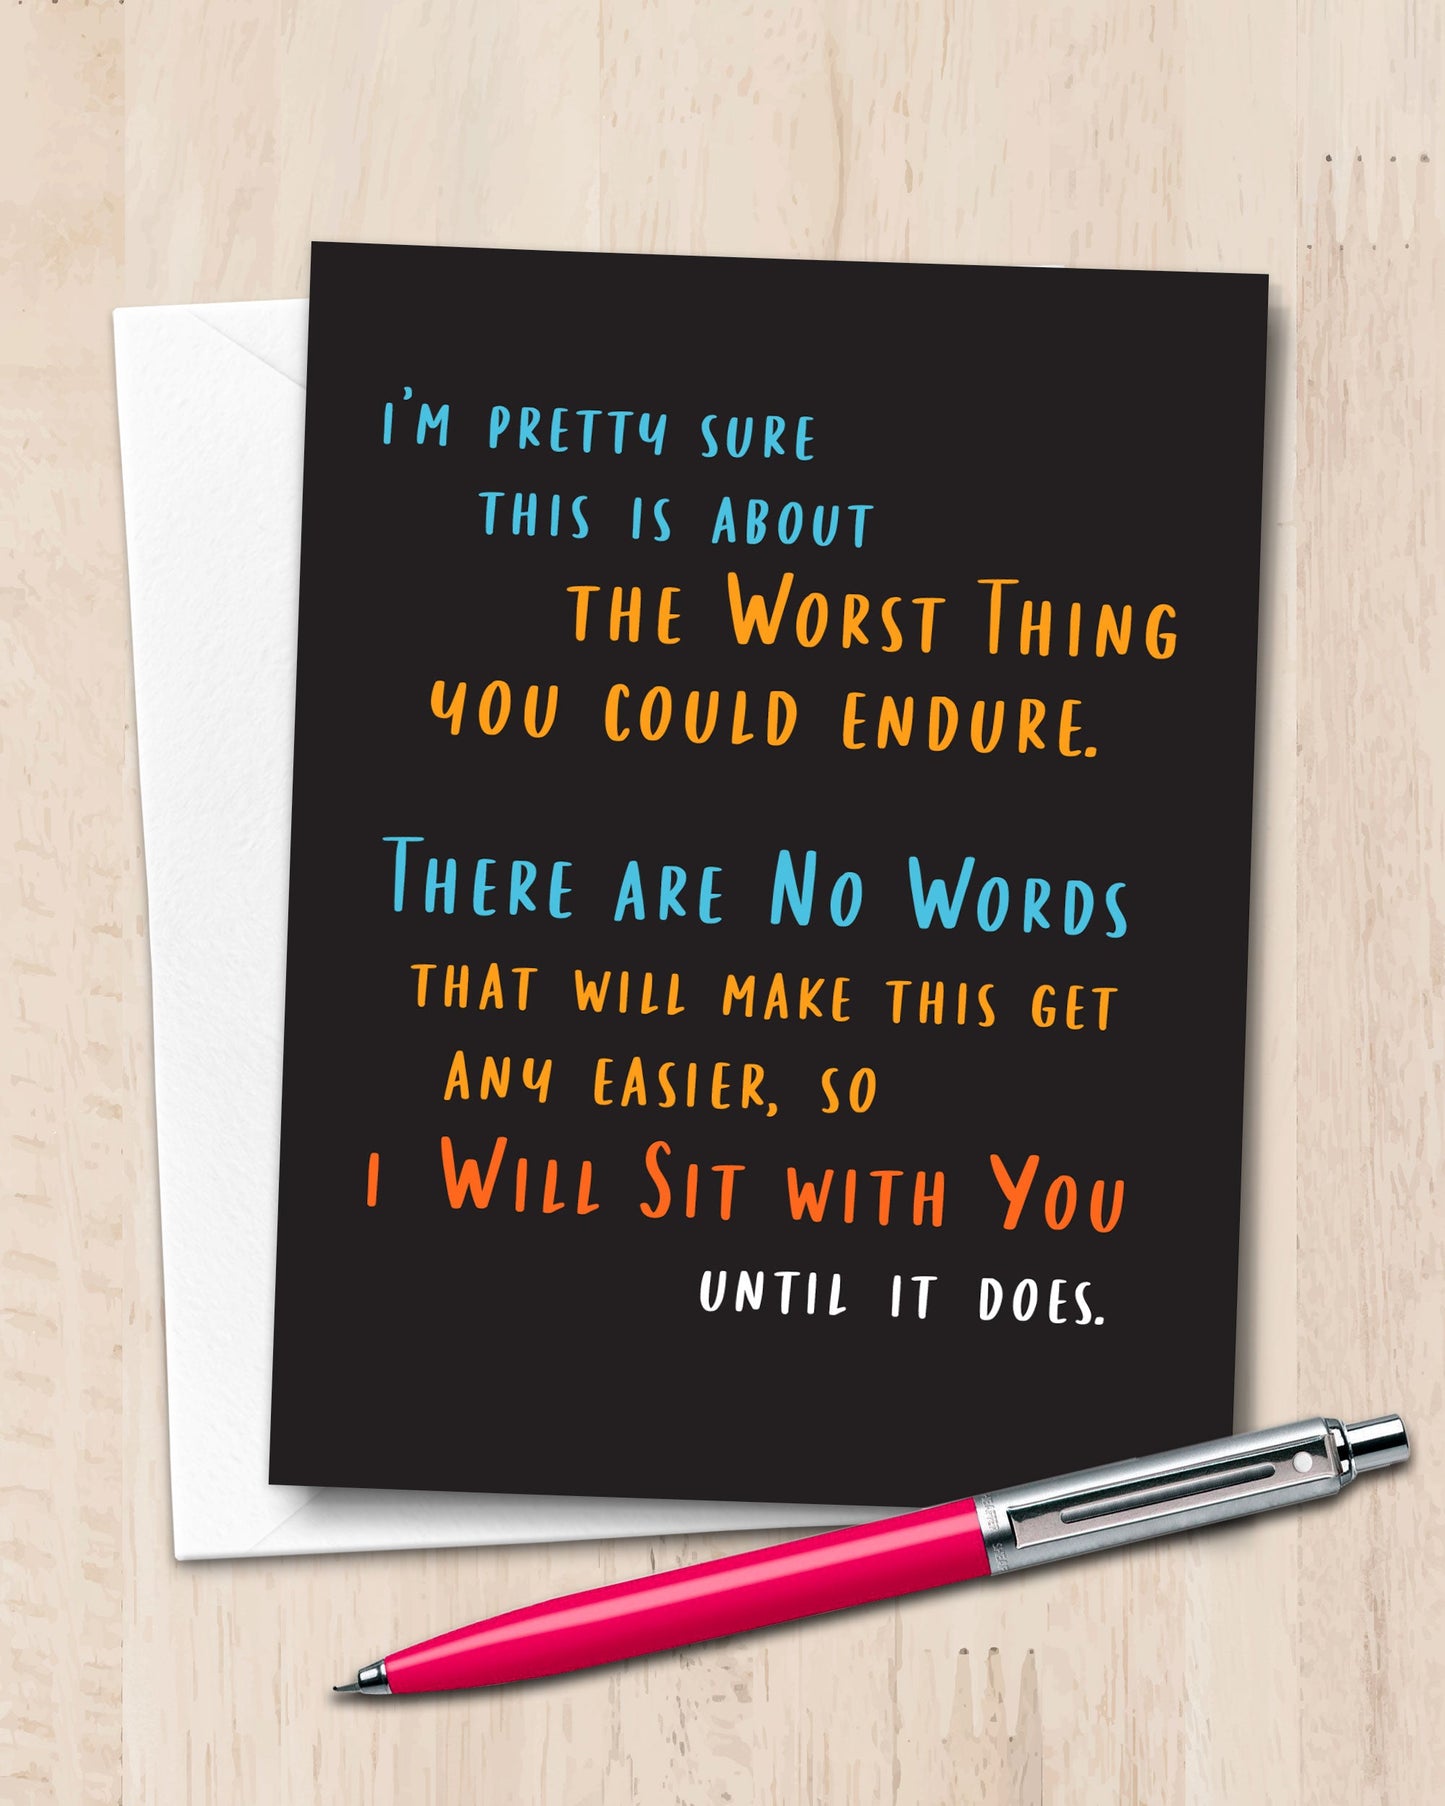 I'M PRETTY SURE
THIS IS ABOUT
THE WORST THING
YOU COULD ENDURE.
THERE ARE NO WORDS
THAT WILL MAKE THIS GET
ANY EASIER, SO
I WILL SIT WITH YOU
UNTIL IT DOES.